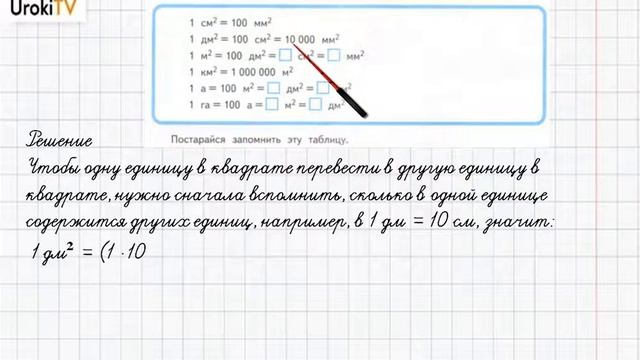 UrokiTV
1 см² = 100 мм²
1 дм² = 100 см² = 10 000 мм²
1 м² = 100 дм² = □ см² = □ мм²
1 км² = 1 000 000 м²
1 а = 100 м² = □ дм² = □ м²
1 га = 100 а = □ м² = □ дм²
Постарайся запомнить эту таблицу.
Решение
Чтобы одну единицу в квадрате перевести в другую единицу в
квадрате, нужно сначала вспомнить, сколько в одной единице
содержится других единиц, например, в 1 дм = 10 см, значит:
1 дм² = (1 · 10